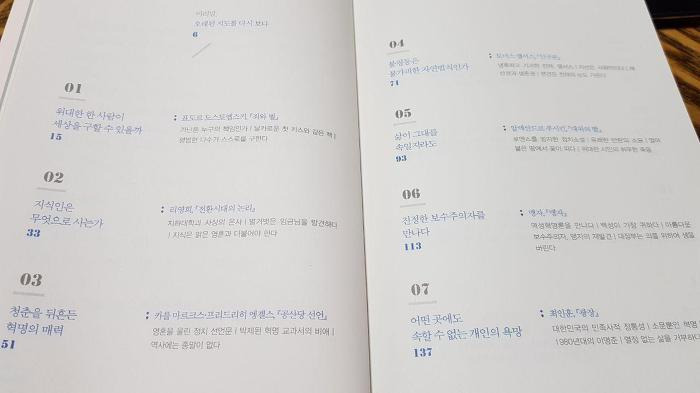 머리말
오래된 지도를 다시 보다
6
01
위대한 한 사람이
세상을 구할 수 있을까
15
: 표도르 도스토옙스키, 『죄와 벌』
가난은 누구의 책임인가 | 날카로운 첫 키스와 같은 책 |
평범한 다수가 스스로를 구한다
02
지식인은
무엇으로 사는가
33
: 리영희, 『전환시대의 논리』
지하대학과 사상의 은사 | 벌거벗은 임금님을 발견하다
| 지식은 맑은 영혼과 더불어야 한다
03
청춘을 뒤흔든
혁명의 매력
51
: 카를 마르크스·프리드리히 엥겔스, 『공산당 선언』
영혼을 울린 정치 선언문 | 박제된 혁명 교과서의 비애 |
역사에는 종말이 없다
04
불평등은
불가피한 자연법칙인가
71
: 토머스 맬서스, 『인구론』
냉혹하고 기괴한 천재, 맬서스 |
05
삶이 그대를
속일지라도
93
: 알렉산드르 푸시킨, 『대위의 딸』
로맨스를 빙자한 정치소설 | 유쾌한 반란의 소묘 | 얼어
붙은 땅에서 꽃이 피다 | 위대한 시인의 허무한 죽음
06
진정한 보수주의자를
만나다
113
: 맹자, 『맹자』
역성혁명론을 만나다 | 백성이 가장 귀하다 | 아름다운
보수주의자, 맹자의 재발견 | 대장부는 의를 위하여 생을
버린다
07
어떤 곳에도
속할 수 없는 개인의 욕망
137
: 최인훈, 『광장』
대한민국의 민족사적 정통성 | 소문뿐인 혁명
1980년대의 이명준 | 열정 없는 삶을 거부하다